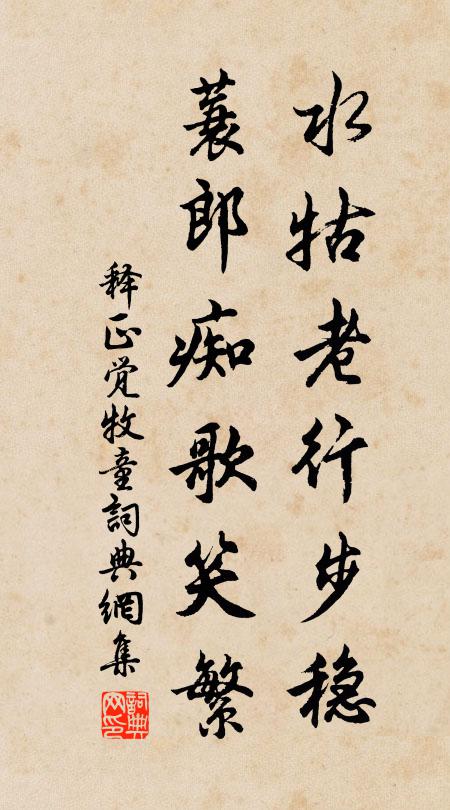 水牯老行步稳
蓑郎痴歌笑繁
释正觉牧童詞典網集
詞典网印